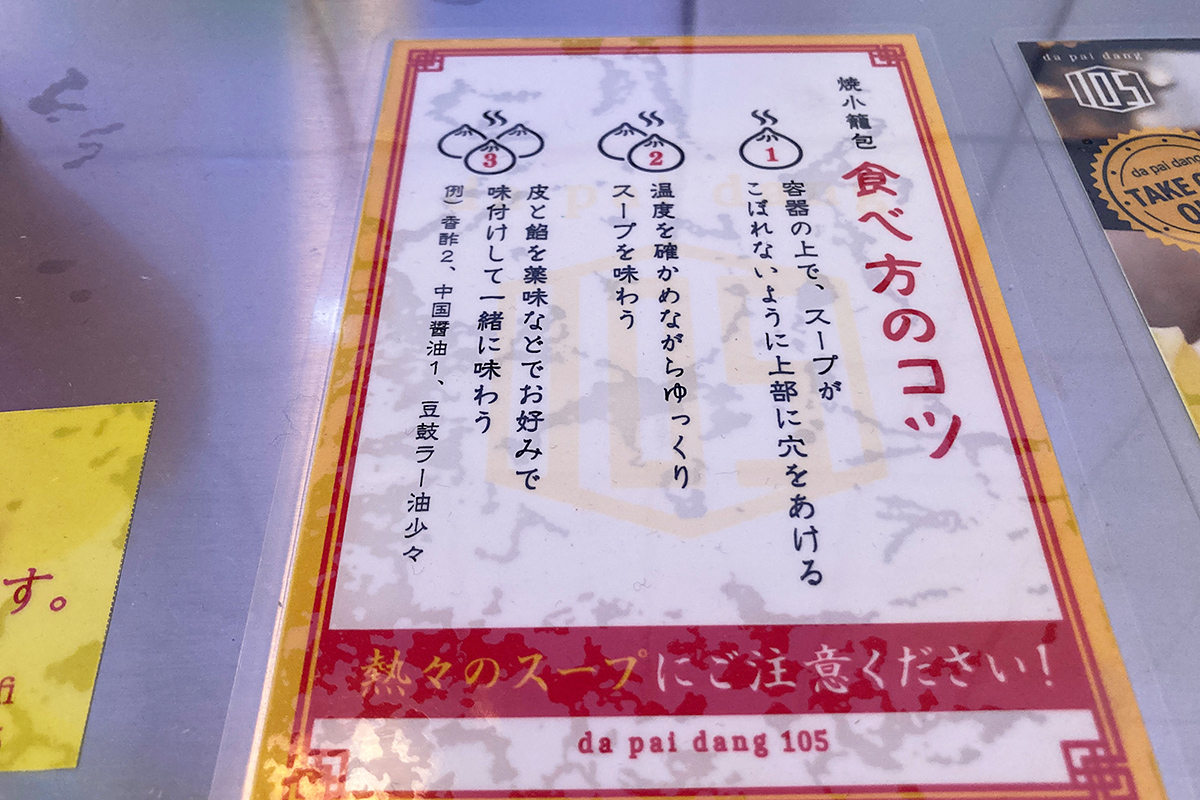 焼小籠包
食べ方のコツ
1
容器の上で、スープが
こぼれないように上部に穴をあける
2
温度を確かめながらゆっくり
スープを味わう
3
皮と餡を薬味などでお好みで
味付けして一緒に味わう
例）香酢2、中国醤油1、豆鼓ラー油少々
熱々のスープにご注意ください！
da pai dang 105
da pai dang
105
da pai dang
TAKE
す。
fi